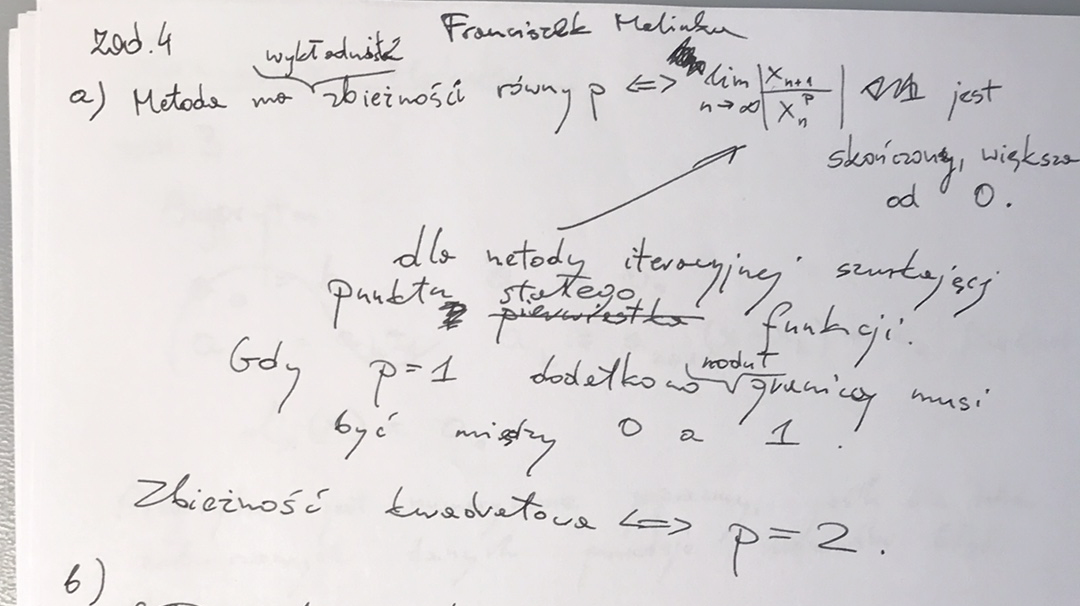 Zad.4 Franciszek
wykładnik
a) Metoda ma zbieżności równy p <=> lim n→∞ |x_{n+1} / x_n^p| jest
skończony, większa
od 0.
dla metody iteracyjnej szukającej
punktu stałego pierwiastka funkcji.
moduł
Gdy p=1 dodatkowo granicy musi
być między 0 a 1.
Zbieżność kwadratowa <=> p=2.
b)